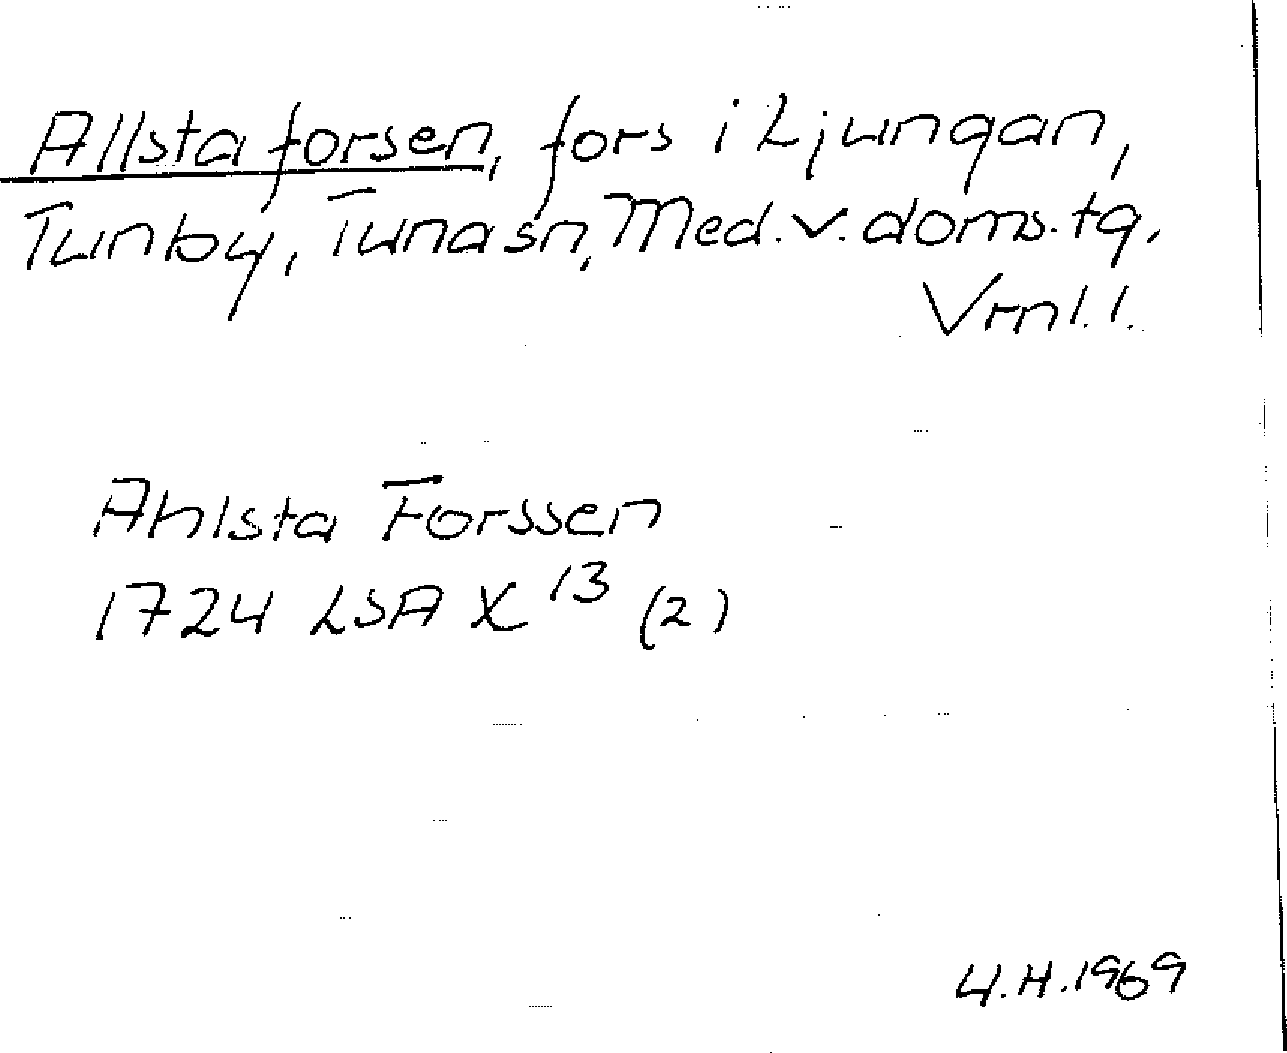 Allstaforsen, fors i Ljungan,
Tunby, Tuna sn, Med. v. doms. tg.
Vrnl. l.
Ahlsta Forssen
1724 LSA X 13 (2)
U.H.1969